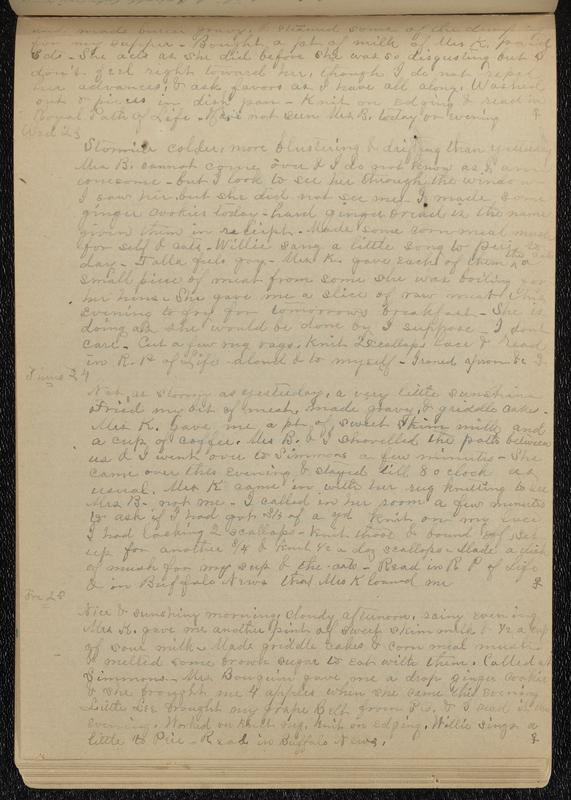 and made onion gravy, & steamed some of the
for my supper - Bought a pt of milk of Mrs K. paid
3 cts - She acts as she did before she was so disgusting but I
don't feel right toward her, though I do not repel
her advances, & ask favors as I have all along. Washed
out 2 pieces in dish pan - Knit on edging & read in
Royal Path of Life. Have not seen Mrs B. today or evening
Wed 23
Stormier colder, more blustering & drifting than yesterday
Mrs B. cannot come over & I do not know as I am
lonesome - but I look to see her through the window
I saw her but she did not see me. I made some
ginger cookies today - hard ginger bread is the name
given them in receipt. Made some corn meal mush
for self & cats. Willie sang a little song to Peig to
day. Falla feels gay. Mrs K. gave each of them the cats a
small piece of meat from some she was boiling for
her hens. She gave me a slice of raw meat this
evening to fry for tomorrows breakfast - She is
doing as she would be done by I suppose - I dont
care. Cut a few rug rags. Knit 2 scallops lace & read
in R. P. of Life aloud & to myself - Ironed apron &c
Thurs 24
Not as stormy as yesterday, a very little sunshine
Fried my bit of meat, made gravy, & griddle cakes -
Mrs K. gave me a pt of sweet skim milk and
a cup of coffee. Mrs B. & I shovelled the path between
us & I went over to Simmons a few minutes - She
came over this evening & stayed till 8 o clock as
usual. Mrs K came in with her rug knitting to see
Mrs B. not me - I called in her room a few minutes
to ask if I had got 2/3 of a yd knit on my lace
I had lacking 2 scallops - knit those & bound off, set
up for another 1/4 & knit 1/2 a doz scallops. Made a dish
of mush for my sup & the cats - Read in R P of Life
& in Buffalo News that Mrs K loaned me
Fri 25
Nice & sunshiny morning, cloudy afternoon, rainy evening
Mrs K. gave me another pint of sweet skim milk & 1/2 a cup
of sour milk. Made griddle cakes & corn meal mush
& melted some brown sugar to eat with them. Called at
Simmons - Mrs Bouquin gave me a drop ginger cookie
& she brought me 4 apples when she came this evening
Little Lee brought my Grape Belt from P.O. & I read it this
evening. Worked on knit rug, knit on edging. Willie sings a
little to Peie - Read in Buffalo News.